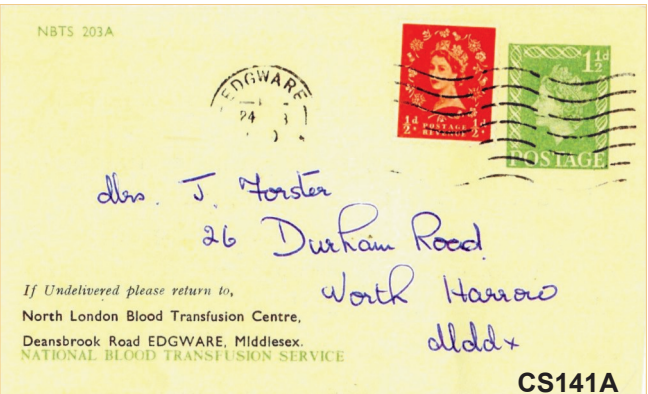 NBTS 203A
EDGWARE
24
½d POSTAGE REVENUE ½d
1½d
POSTAGE
Mrs. J. Forster
26 Durham Road
North Harrow
Mddx
If Undelivered please return to,
North London Blood Transfusion Centre,
Deansbrook Road EDGWARE, Middlesex.
NATIONAL BLOOD TRANSFUSION SERVICE
CS141A